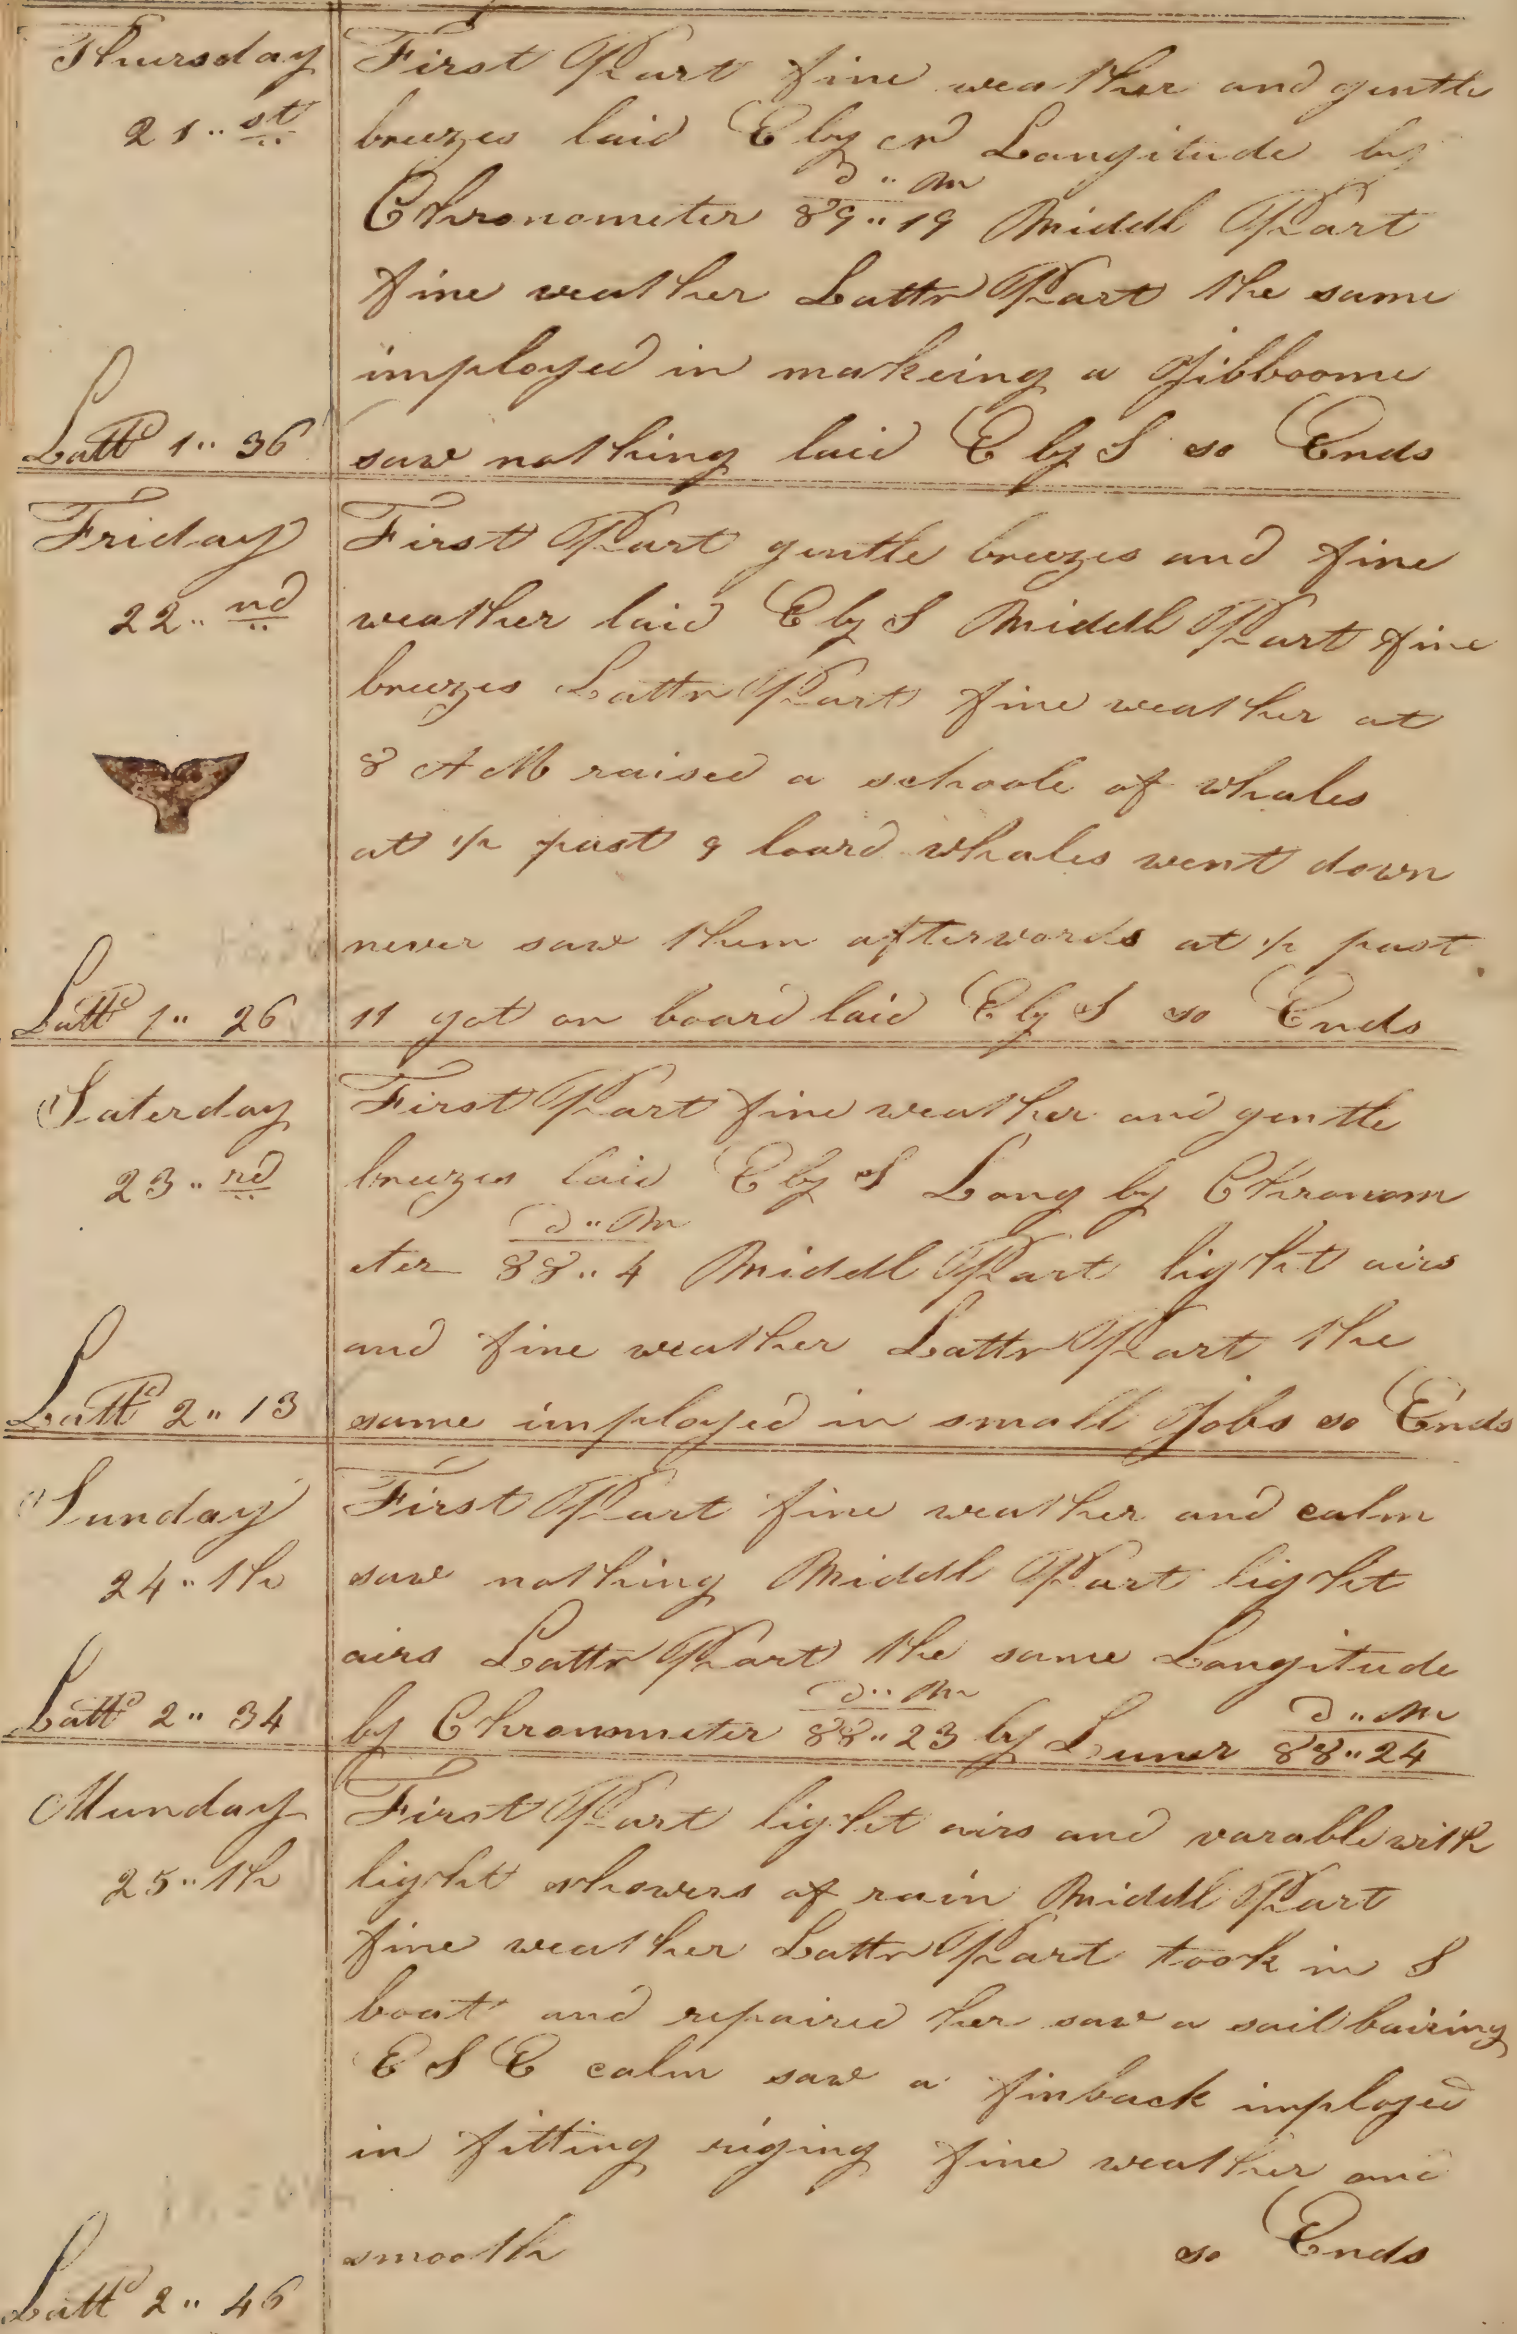 Thursday
21..st
Lattd 1.. 36
First Part fine weather and gentle
breezes laid E by N Longitude by
d .. m
Chronometer 89..19 Middl Part
fine weather Lattr Part the same
imployed in makeing a Jibboome
saw nothing laid E by S so Ends
Friday
22..nd
Lattd 1.. 26
First Part gentle breezes and fine
weather laid E by S Middl Part fine
breezes Lattr Part fine weather at
8 A M raised a schoole of whales
at 1/2 past 9 loard whales went down
never saw them afterwords at 1/2 past
11 got on board laid E by S so Ends
Saterday
23..rd
Lattd 2.. 13
First Part fine weather and gentle
breezes laid E by S Long by Chronom
d .. m
eter 88..4 Middl Part light airs
and fine weather Lattr Part the
same imployed in small Jobs so Ends
Sunday
24..th
Lattd 2.. 34
First Part fine weather and calm
saw nothing Middl Part light
airs Lattr Part the same Longitude
d .. m d .. m
by Chronometer 88..23 by Luner 88..24
Munday
25..th
Lattd 2.. 46
First Part light airs and varable with
light showers of rain Middl Part
fine weather Lattr Part took in S
boat and repaired her saw a sail bairing
E S E calm saw a finback imployed
in fitting riging fine weather and
smooth so Ends